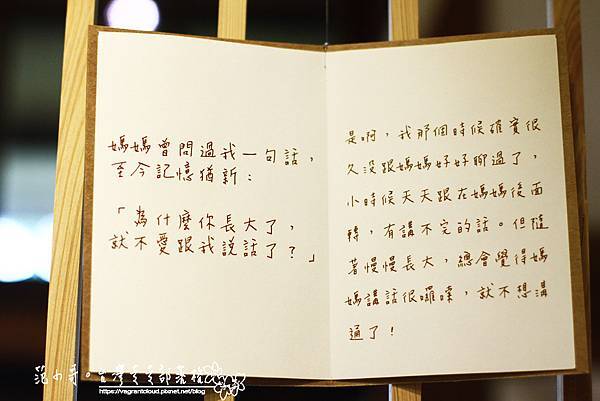 媽媽曾問過我一句話，
至今記憶猶新：
「為什麼你長大了，
就不愛跟我說話了？」
是啊，我那個時候確實很
久沒跟媽媽好好聊過了，
小時候天天跟在媽媽後面
轉，有講不完的話。但隨
著慢慢長大，總會覺得媽
媽講話很囉嗦，就不想溝
通了！
https://vagrantcloud.pixnet.net/blog